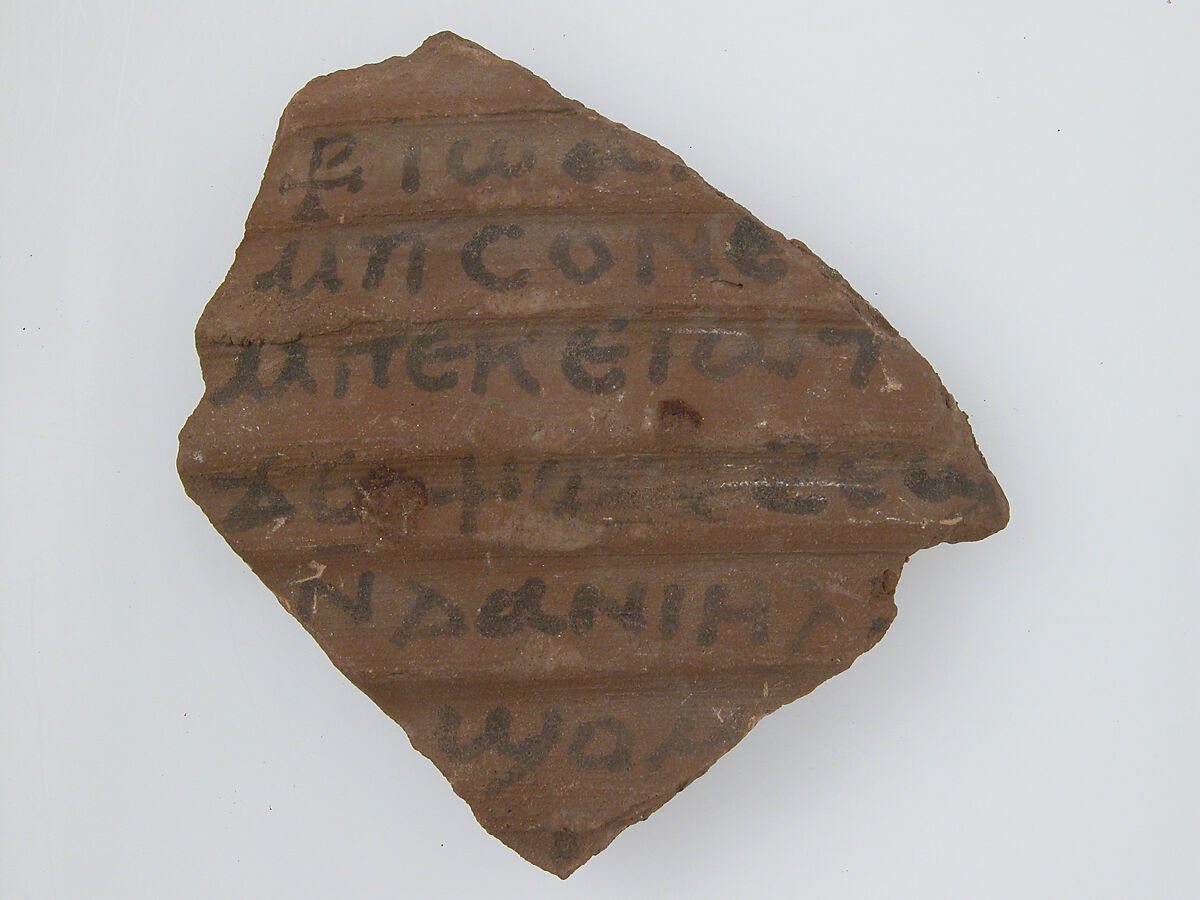 ⳨ ⲓⲱⲁ
ⲙⲡⲥⲟⲛⲉ
ⲙⲡⲉⲕⲉⲓⲱⲧ
ϫⲉ
ⲛⲇⲁⲛⲓⲏⲗ
ϣⲟⲙ